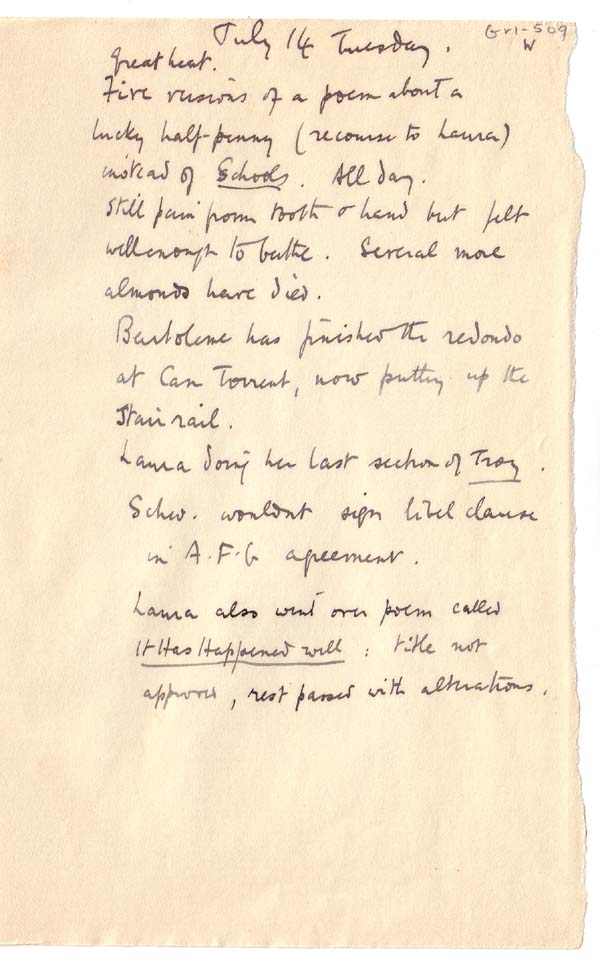 Gr1-509
W
July 14 Tuesday.
Great heat.
Five versions of a poem about a
lucky half-penny (recourse to Laura)
instead of Schools. All day.
Still pain from tooth & hand but felt
well enough to bathe. Several more
almonds have died.
Bartolome has finished the redondo
at Can Torrent, now putting up the
Stair rail.
Laura doing her last section of Troy.
Schw. wouldnt sign libel clause
in A.F.G agreement.
Laura also went over poem called
It Has Happened well : title not
approved, rest passed with alterations.